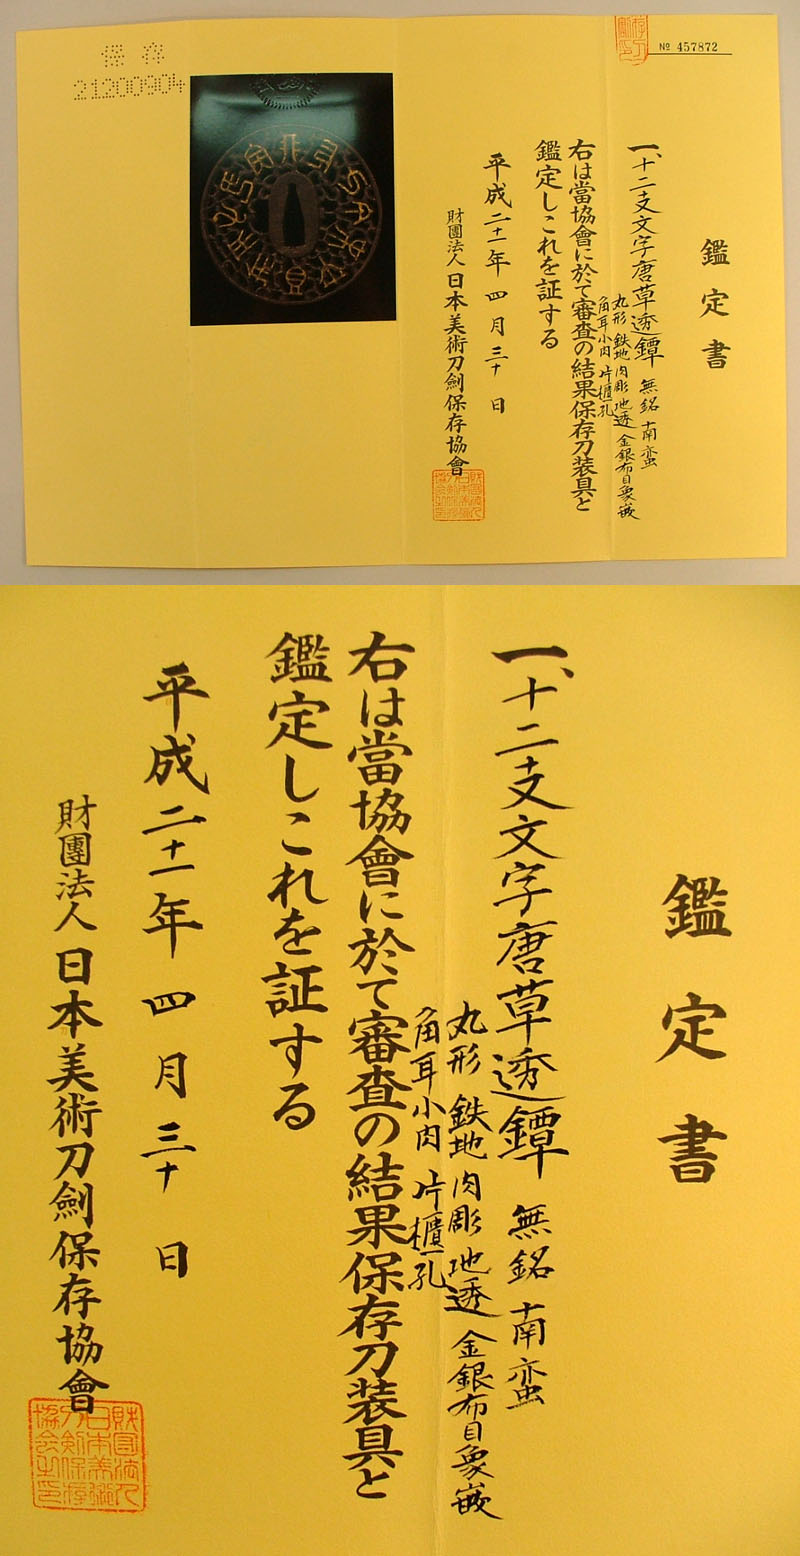 保存
21200904
№ 457872
鑑定書
一、十二支文字唐草透鐔 無銘 南蛮
丸形 鉄地 肉彫地透 金銀布目象嵌
角耳小肉 片櫃孔
右は當協會に於て審査の結果保存刀装具と
鑑定しこれを証する
平成二十一年四月三十日
財團法人日本美術刀劍保存協會
鑑定書
一、十二支文字唐草透鐔 無銘 南蛮
丸形 鉄地 肉彫地透 金銀布目象嵌
角耳小肉 片櫃孔
右は當協會に於て審査の結果保存刀装具と
鑑定しこれを証する
平成二十一年四月三十日
財團法人日本美術刀劍保存協會
財団法人
日本美術
刀剣保存
協会之印